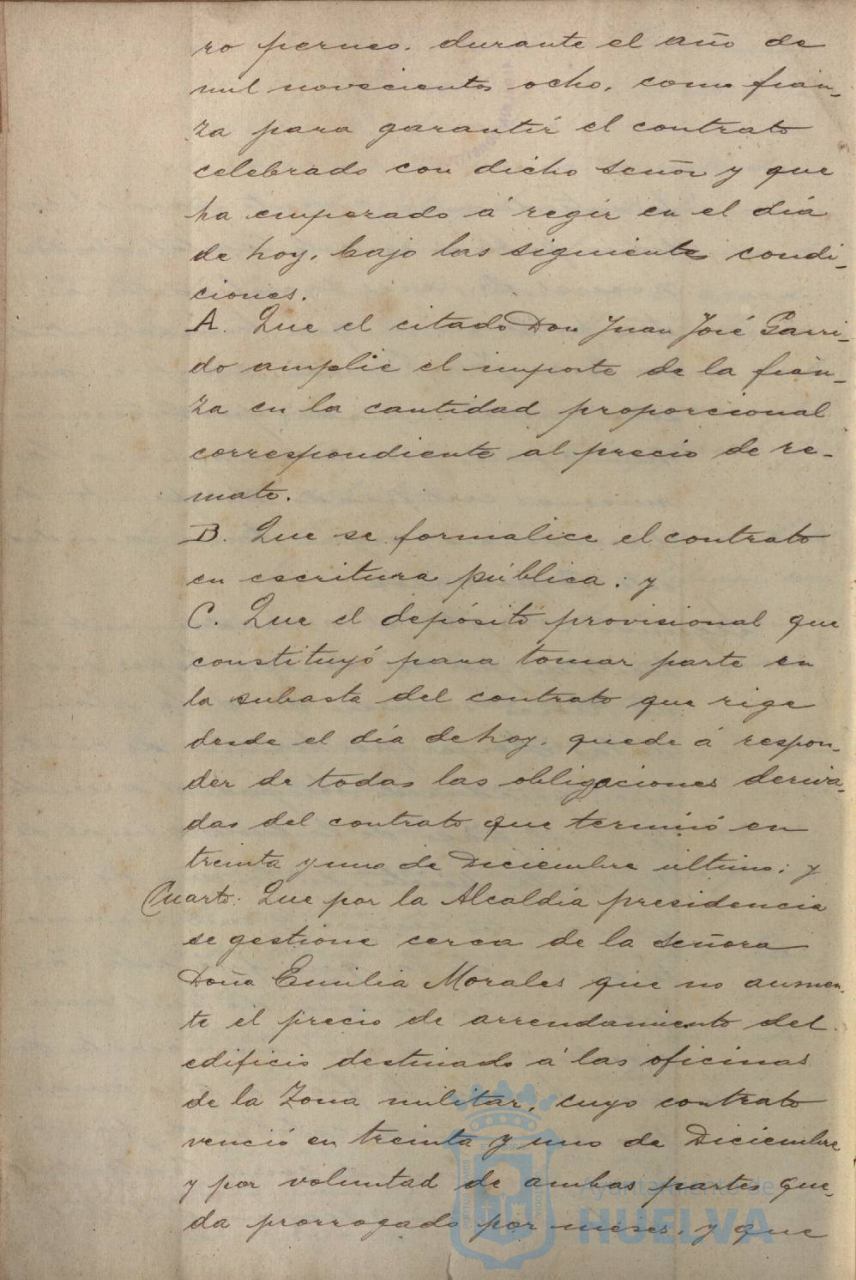 ro perneo. durante el año de
mil novecientos ocho, como fian-
za para garantir el contrato
celebrado con dicho Señor y que
ha empezado á regir en el día
de hoy, bajo las siguientes condi-
ciones.
A. Que el citado Don Juan José Garri-
do amplie el importe de la fian-
za en la cantidad proporcional
correspondiente al precio de re-
mate.
B. Que se formalice el contrato
en escritura pública; y
C. Que el depósito provisional que
constituyó para tomar parte en
la subasta del contrato que rige
desde el día de hoy, quede á respon-
der de todas las obligaciones deriva-
das del contrato que terminó en
treinta y uno de Diciembre último; y
Cuarto: Que por la Alcaldía presidencia
se gestione cerca de la Señora
Doña Emilia Morales que no aumen-
te el precio de arrendamiento del
edificio destinado á las oficinas
de la Zona militar, cuyo contrato
venció en treinta y uno de Diciembre
y por voluntad de ambas partes que-
da prorrogado por meses, y que
Ayuntamiento de
HUELVA